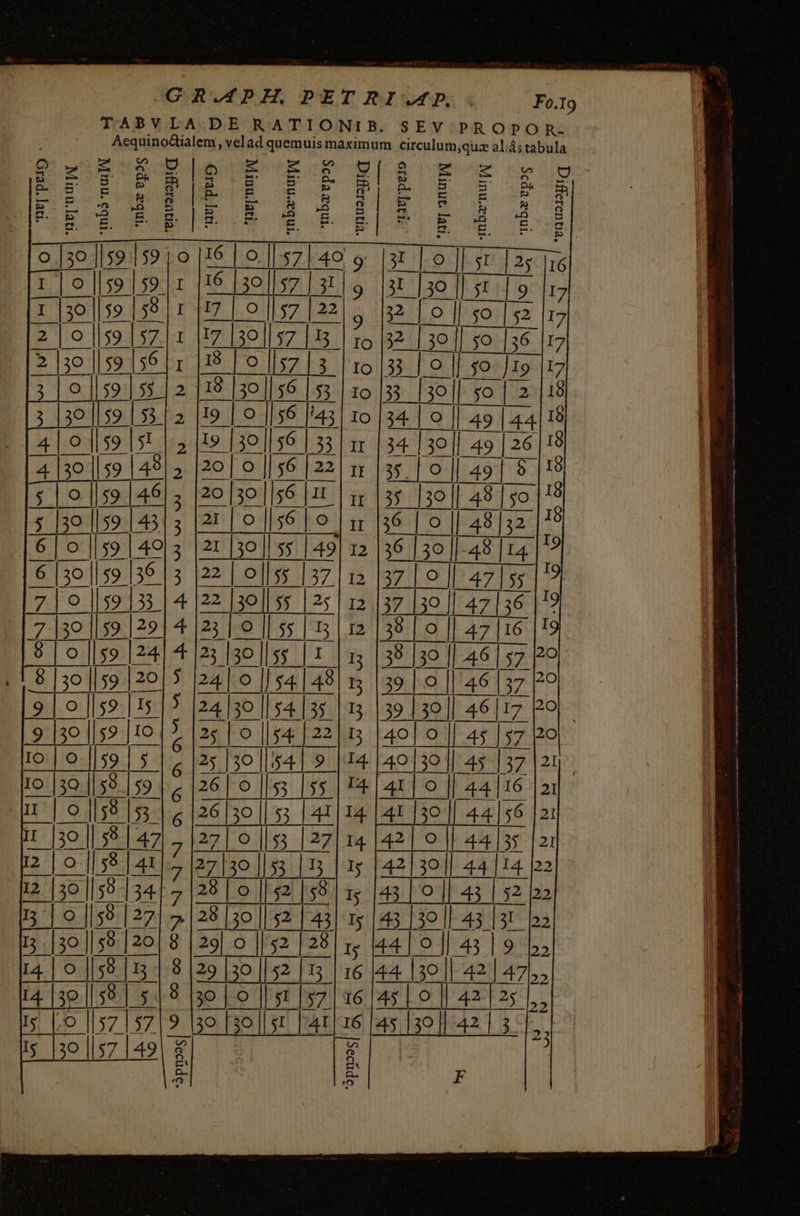 GRAPH. PET RI AP. Fo.19
TABVLA DE RATIONIB. SEV PROPOR-
Aequinoctialem, vel ad quemuis maximum circulum, quæ aliás tabula
Grad. lati. Minu. lati. Minu. equi. Scda æqui. Differentia. Grad. lati. Minu. lati. Minu. æqui. Scda æqui. Differentia. Grad. lati. Minut. lati. Minu. æqui. Scda æqui. Differentia.
0 30 59 59 0 16 0 57 40 9 31 0 51 25 16
1 0 59 59 1 16 30 57 31 9 31 30 51 9 17
1 30 59 58 1 17 0 57 22 9 32 0 50 52 17
2 0 59 57 1 17 30 57 13 10 32 30 50 36 17
2 30 59 56 1 18 0 57 3 10 33 0 50 19 17
3 0 59 55 2 18 30 56 53 10 33 30 50 2 18
3 30 59 53 2 19 0 56 43 10 34 0 49 44 18
4 0 59 51 2 19 30 56 33 11 34 30 49 26 18
4 30 59 48 2 20 0 56 22 11 35 0 49 8 18
5 0 59 46 3 20 30 56 11 11 35 30 48 50 18
5 30 59 43 3 21 0 56 0 11 36 0 48 32 18
6 0 59 40 3 21 30 55 49 12 36 30 48 14 19
6 30 59 36 3 22 0 55 37 12 37 0 47 55 19
7 0 59 33 4 22 30 55 25 12 37 30 47 36 19
7 30 59 29 4 23 0 55 13 12 38 0 47 16 19
8 0 59 24 4 23 30 55 1 13 38 30 46 57 20
8 30 59 20 5 24 0 54 48 13 39 0 46 37 20
9 0 59 15 5 24 30 54 35 13 39 30 46 17 20
9 30 59 10 5 25 0 54 22 13 40 0 45 57 20
10 0 59 5 6 25 30 54 9 14 40 30 45 37 21
10 30 58 59 6 26 0 53 55 14 41 0 44 16 21
11 0 58 53 6 26 30 53 41 14 41 30 44 56 21
11 30 58 47 7 27 0 53 27 14 42 0 44 35 21
12 0 58 41 7 27 30 53 13 15 42 30 44 14 22
12 30 58 34 7 28 0 52 58 15 43 0 43 52 22
13 0 58 27 7 28 30 52 43 15 43 30 43 31 22
13 30 58 20 8 29 0 52 28 15 44 0 43 9 22
14 0 58 13 8 29 30 52 13 16 44 30 42 47 22
14 30 58 5 8 30 0 51 57 16 45 0 42 25 22
15 0 57 57 9 30 30 51 41 16 45 30 42 3 23
15 30 57 49 Secūdę. Secūdę.
F